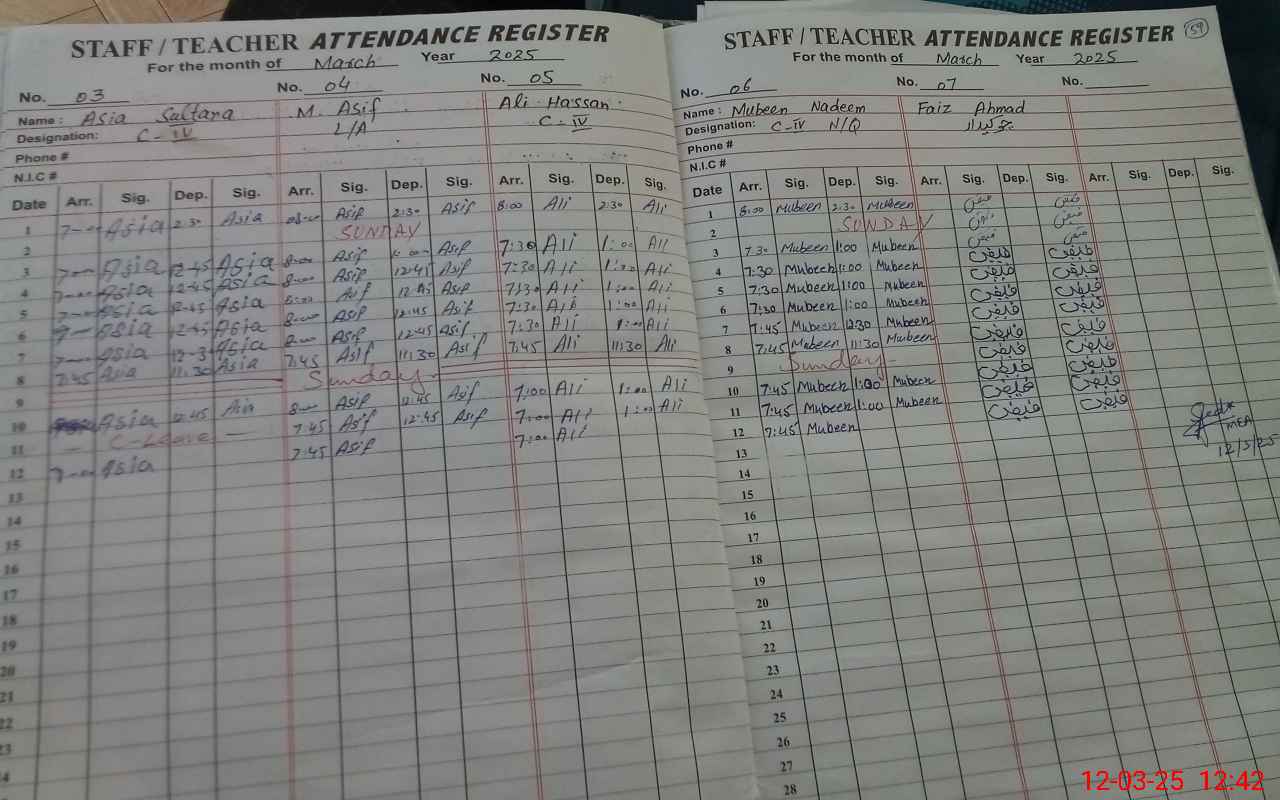 STAFF / TEACHER ATTENDANCE REGISTER
For the month of March Year 2025
No. 03 No. 04 No. 05
Name: Asia Sultana M. Asif Ali Hassan
Designation: C-IV L/A C-IV
Phone #
N.I.C #
Date Arr. Sig. Dep. Sig. Arr. Sig. Dep. Sig. Arr. Sig. Dep. Sig.
1 Asia 2:30 Asia Asif 2:30 Asif 8:00 Ali 2:30 Ali
2 SUNDAY
3 Asia 12-45 Asia Asif Asif 7:30 Ali 1:00 Ali
4 Asia 12-45 Asia Asif 12:45 Asif 7:30 Ali 1:00 Ali
5 Asia 12-45 Asia Asif Asif 7:30 Ali 1:00 Ali
6 Asia 12-45 Asia Asif 12:45 Asif 7:30 Ali 1:00 Ali
7 Asia Asia Asif 12:45 Asif 7:30 Ali Ali
8 7:45 Asia 11:30 Asia 7:45 Asif 11:30 Asif 7:45 Ali 11:30 Ali
9 Sunday
10 Asia 12:45 Asia Asif 12:45 Asif 7:00 Ali 1:00 Ali
11 C-Leave 7:45 Asif 12:45 Asif 7:00 Ali 1:00 Ali
12 Asia 7:45 Asif 7:00 Ali
13
14
15
16
17
18
19
20
21
22
23
STAFF / TEACHER ATTENDANCE REGISTER 59
For the month of March Year 2025
No. 06 No. 07 No.
Name: Mubeen Nadeem Faiz Ahmad
Designation: C-IV N/Q چوکیدار
Phone #
N.I.C #
Date Arr. Sig. Dep. Sig. Arr. Sig. Dep. Sig. Arr. Sig. Dep. Sig.
1 8:00 Mubeen 2:30 Mubeen فیض فیض
2 SUNDAY فیض
3 7:30 Mubeen 1:00 Mubeen فیض فیض
4 7:30 Mubeen 1:00 Mubeen فیض فیض
5 7:30 Mubeen 1:00 Mubeen فیض فیض
6 7:30 Mubeen 1:00 Mubeen فیض فیض
7 7:45 Mubeen 12:30 Mubeen فیض فیض
8 7:45 Mubeen 11:30 Mubeen فیض فیض
9 Sunday فیض فیض
10 7:45 Mubeen 1:00 Mubeen فیض فیض
11 7:45 Mubeen 1:00 Mubeen فیض فیض
12 7:45 Mubeen فیض فیض
MEA
13 12/3/25
14
15
16
17
18
19
20
21
22
23
24
25
26
27
28
12-03-25 12:42